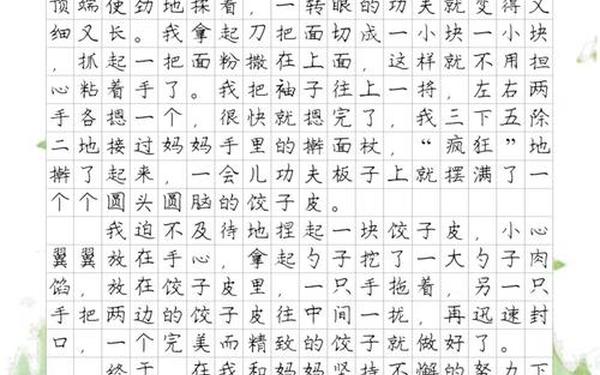 顶端使劲地揉着，一转眼的功夫就变得又
细又长。我拿起刀把面切成一小块一小块
，抓起一把面粉撒在上面，这样就不用担
心粘着手了。我把袖子往上一捋，左右两
手各摁一个，很快就摁完了，我三下五除
二地接过妈妈手里的擀面杖，“疯狂”地
擀了起来，一会儿功夫板子上就摆满了一
个个圆头圆脑的饺子皮。
我迫不及待地捏起一块饺子皮，小心
翼翼放在手心，拿起勺子挖了一大勺子肉
馅，放在饺子皮里，一只手拖着，另一只
手把两边的饺子皮往中间一拢，再迅速封
口，一个完美而精致的饺子就做好了。
终于，在我和妈妈坚持不懈的努力下